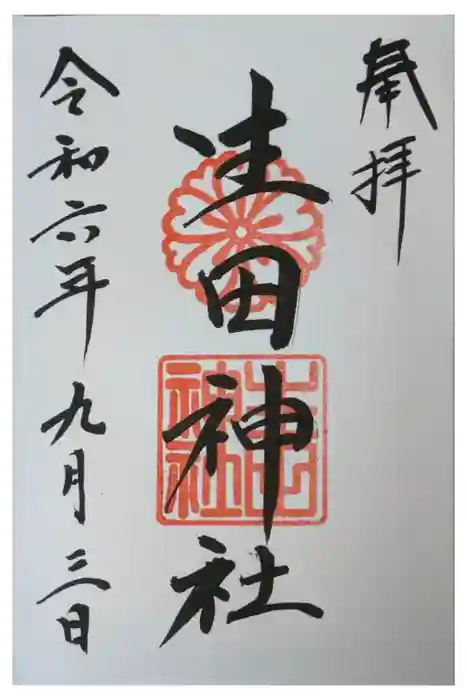 奉拝
生田神社
令和六年九月三日